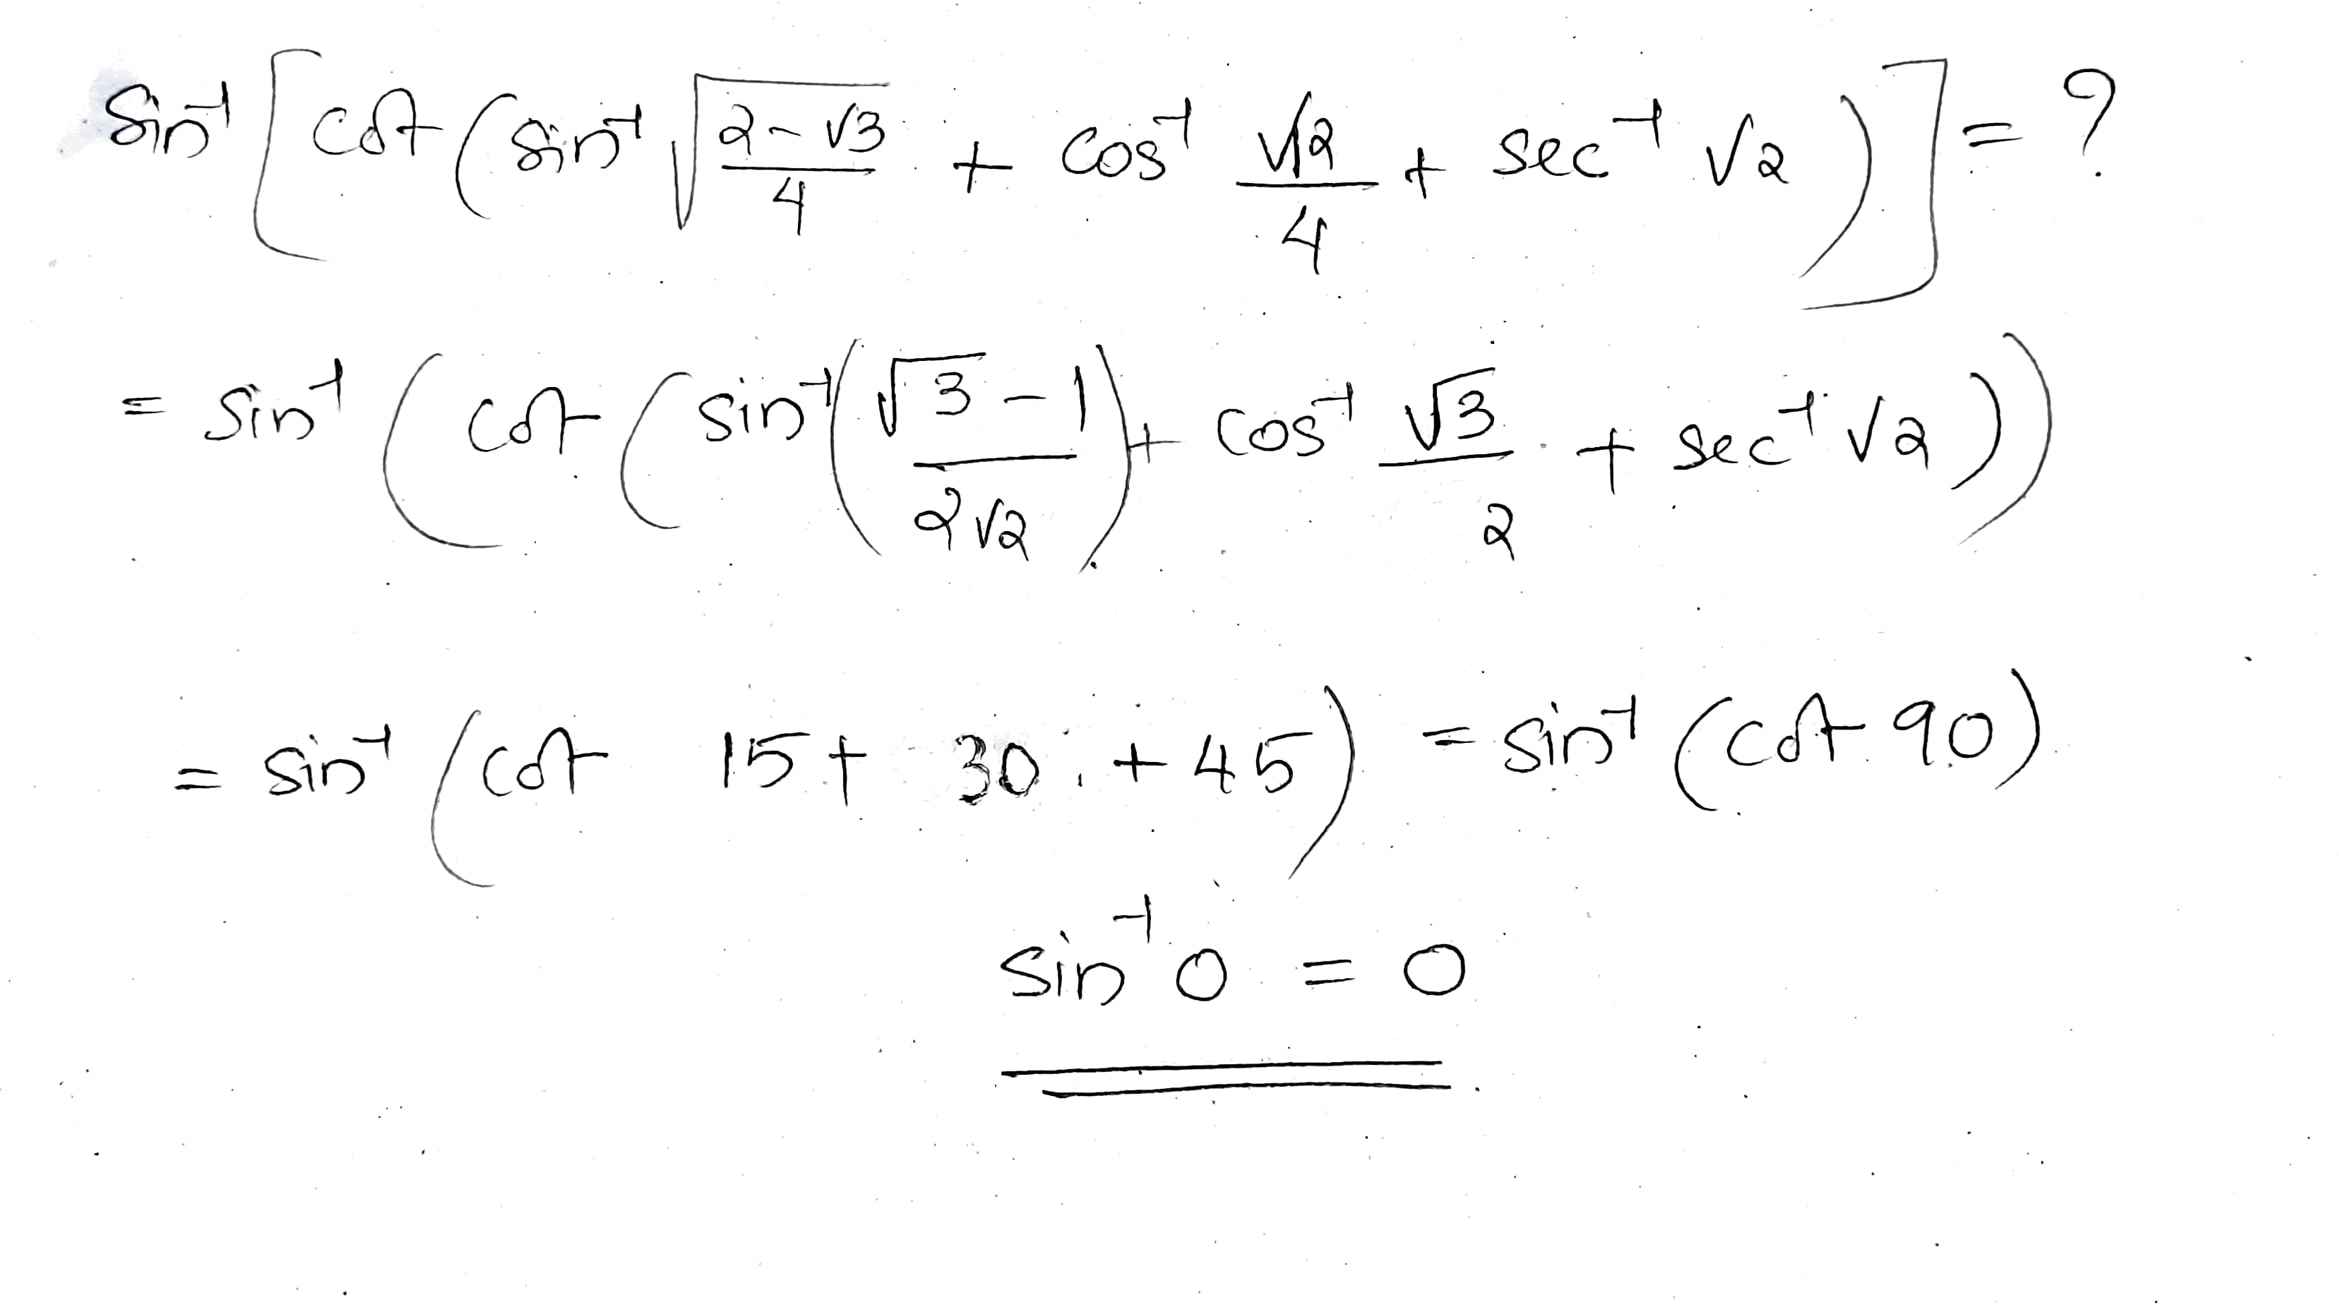 sin⁻¹ [ cot ( sin⁻¹ √((2-√3)/4) + cos⁻¹ √12/4 + sec⁻¹ √2 ) ] = ?
= sin⁻¹ ( cot ( sin⁻¹ ( (√3-1)/(2√2) ) + cos⁻¹ √3/2 + sec⁻¹ √2 ) )
= sin⁻¹ ( cot 15 + 30 + 45 ) = sin⁻¹ ( cot 90 )
sin⁻¹ 0 = 0